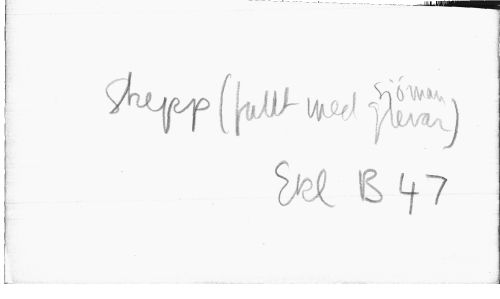 Skepp (fullt med sjöman
glevar)
Ekl B 47